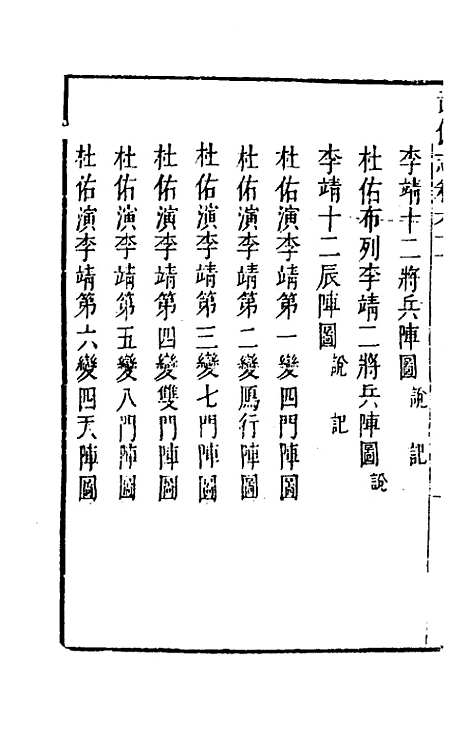 李靖十二將兵陣圖 說 記
杜佑布列李靖二將兵陣圖 說
李靖十二辰陣圖 說 記
杜佑演李靖第一變四門陣圖
杜佑演李靖第二變鴈行陣圖
杜佑演李靖第三變七門陣圖
杜佑演李靖第四變雙門陣圖
杜佑演李靖第五變八門陣圖
杜佑演李靖第六變四天陣圖